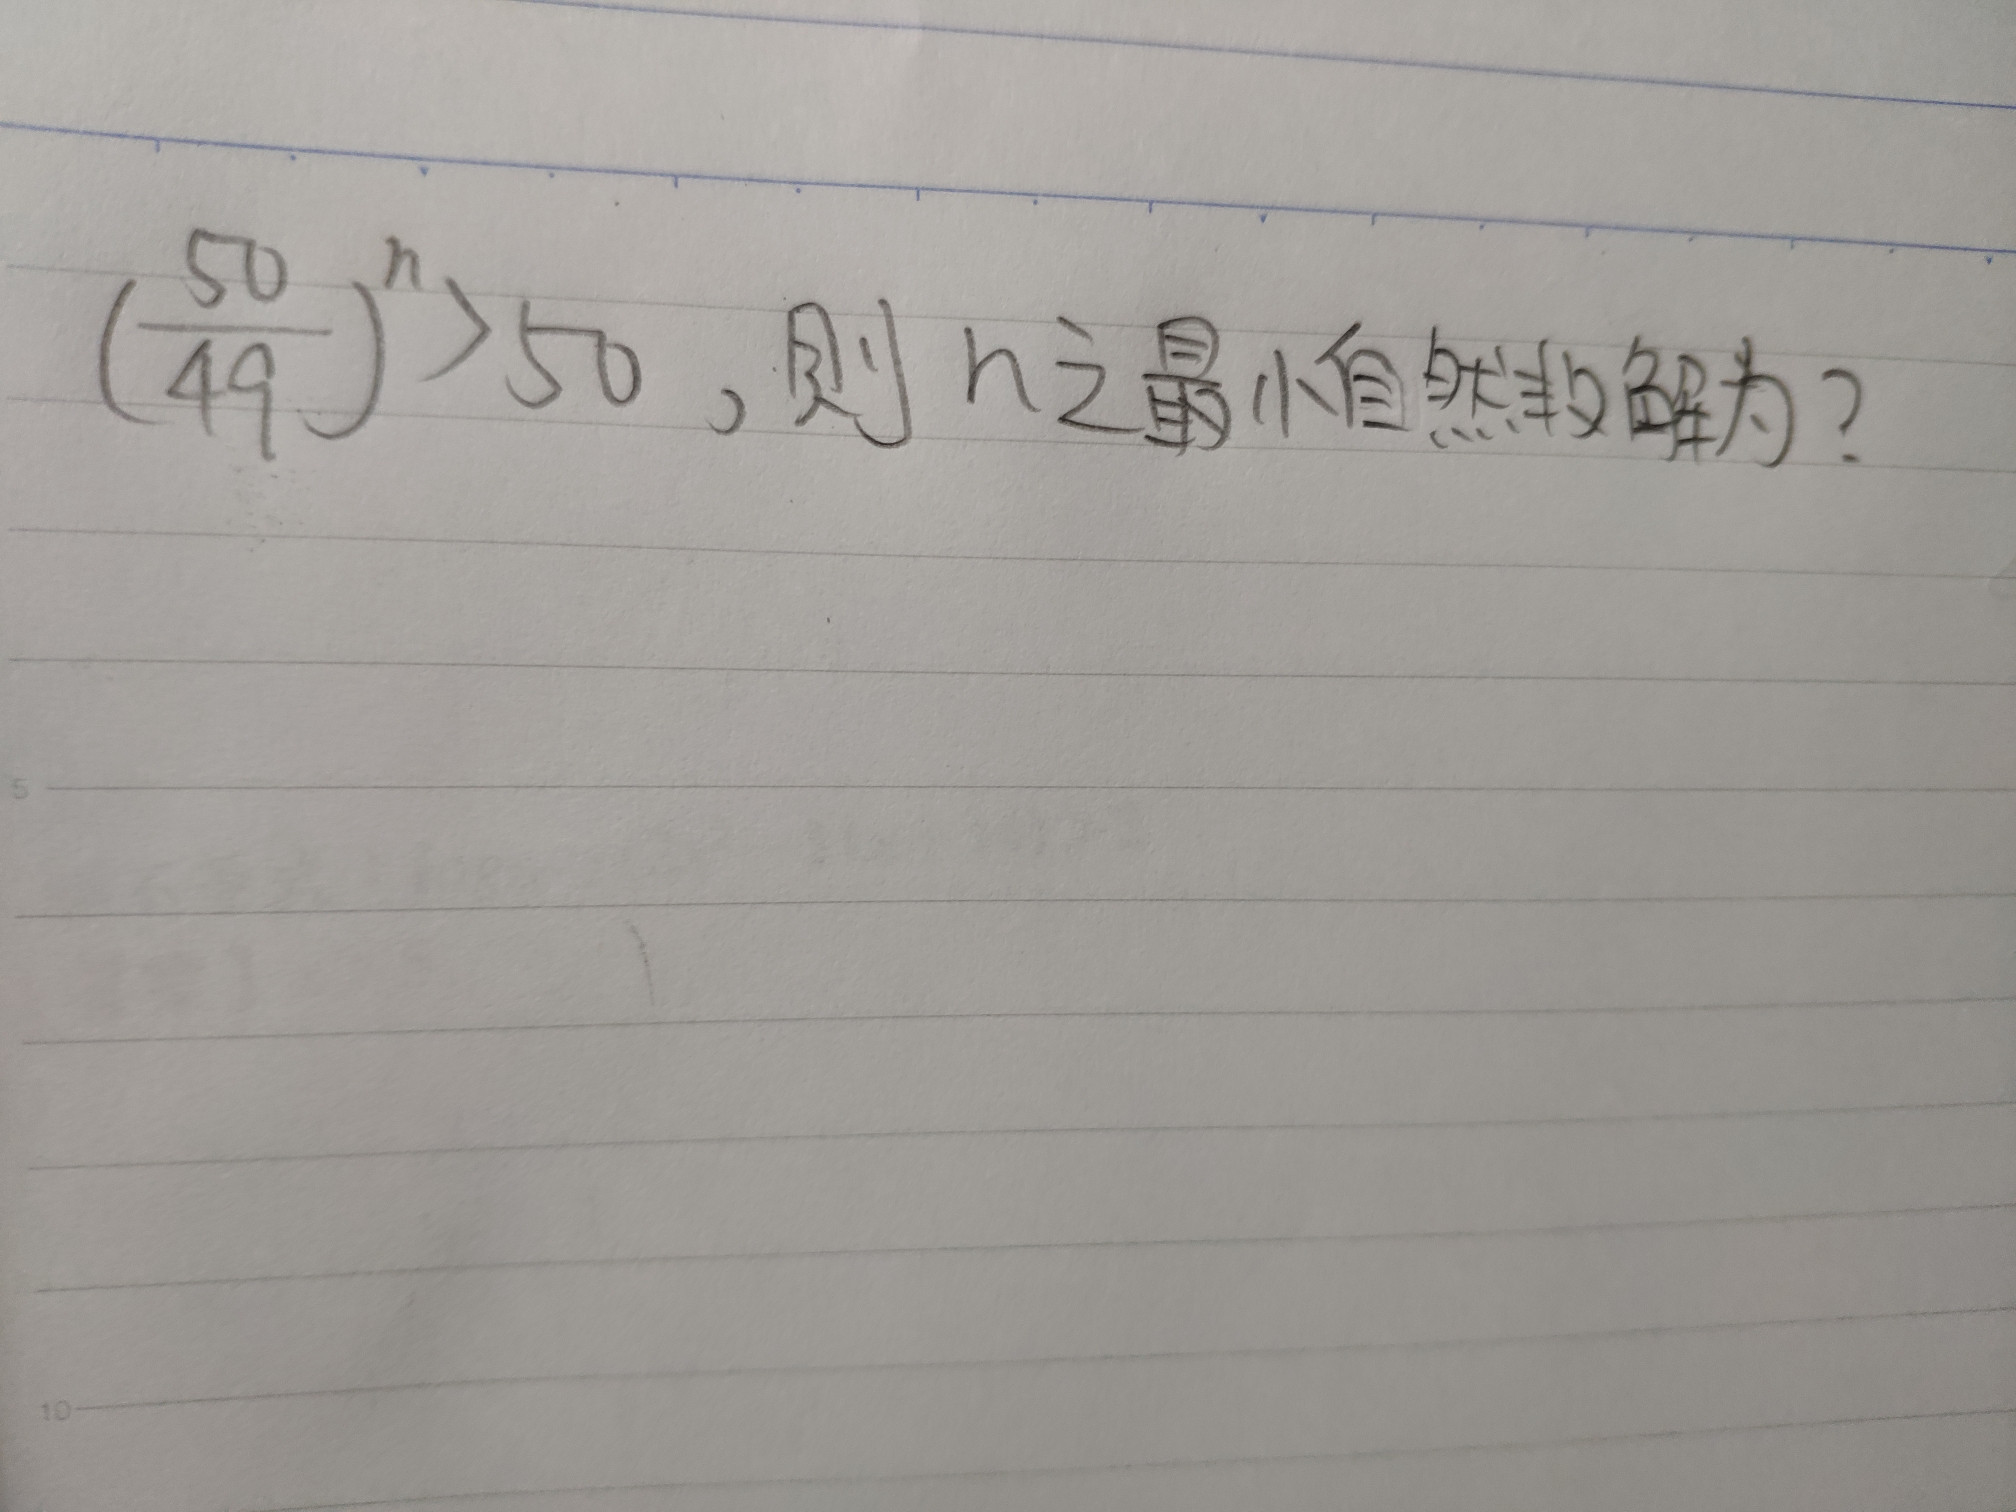 (50/49)^n>50，则n之最小自然数解为？
5
10